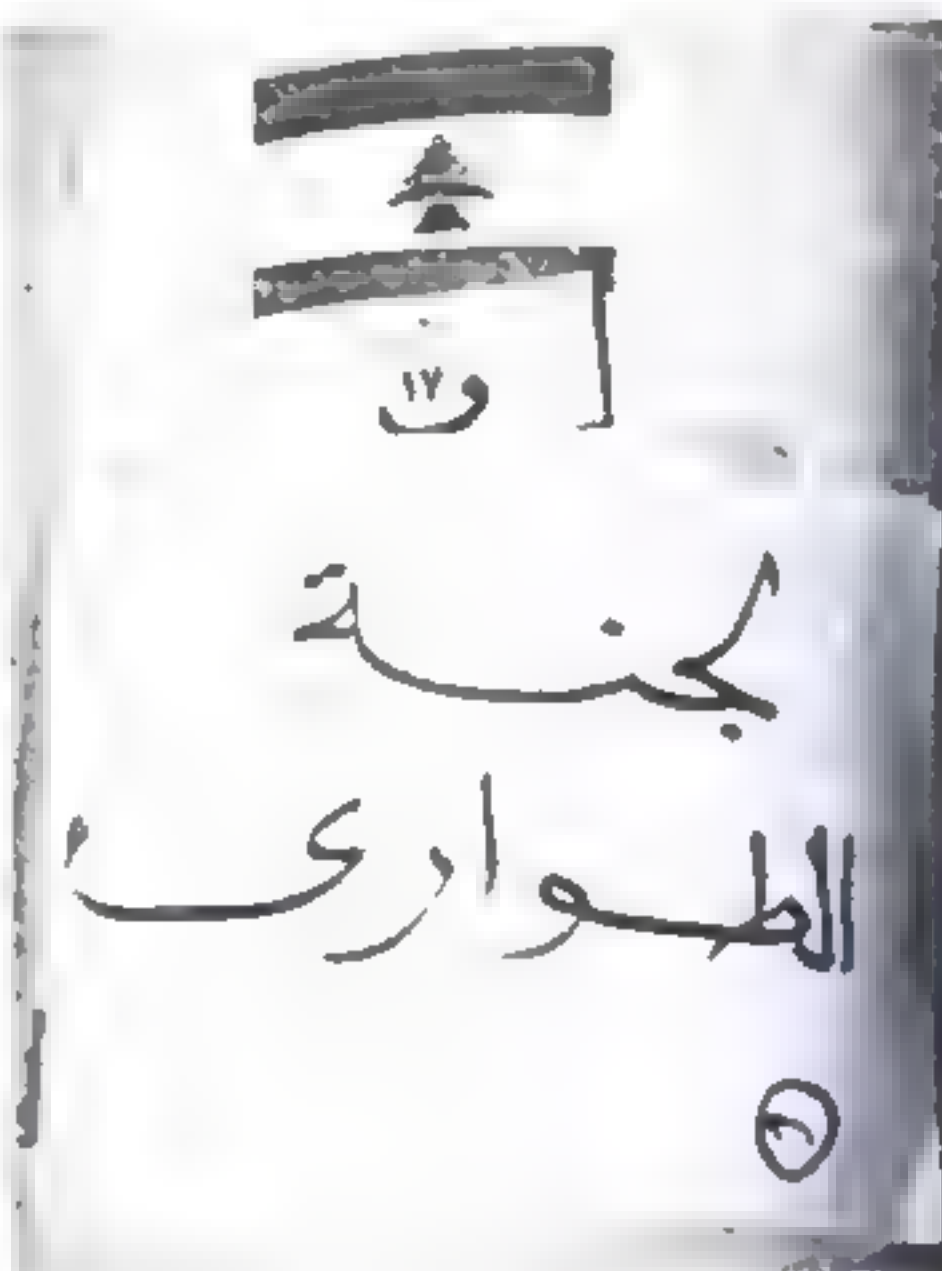 ١٧
لجنة
الطوارى